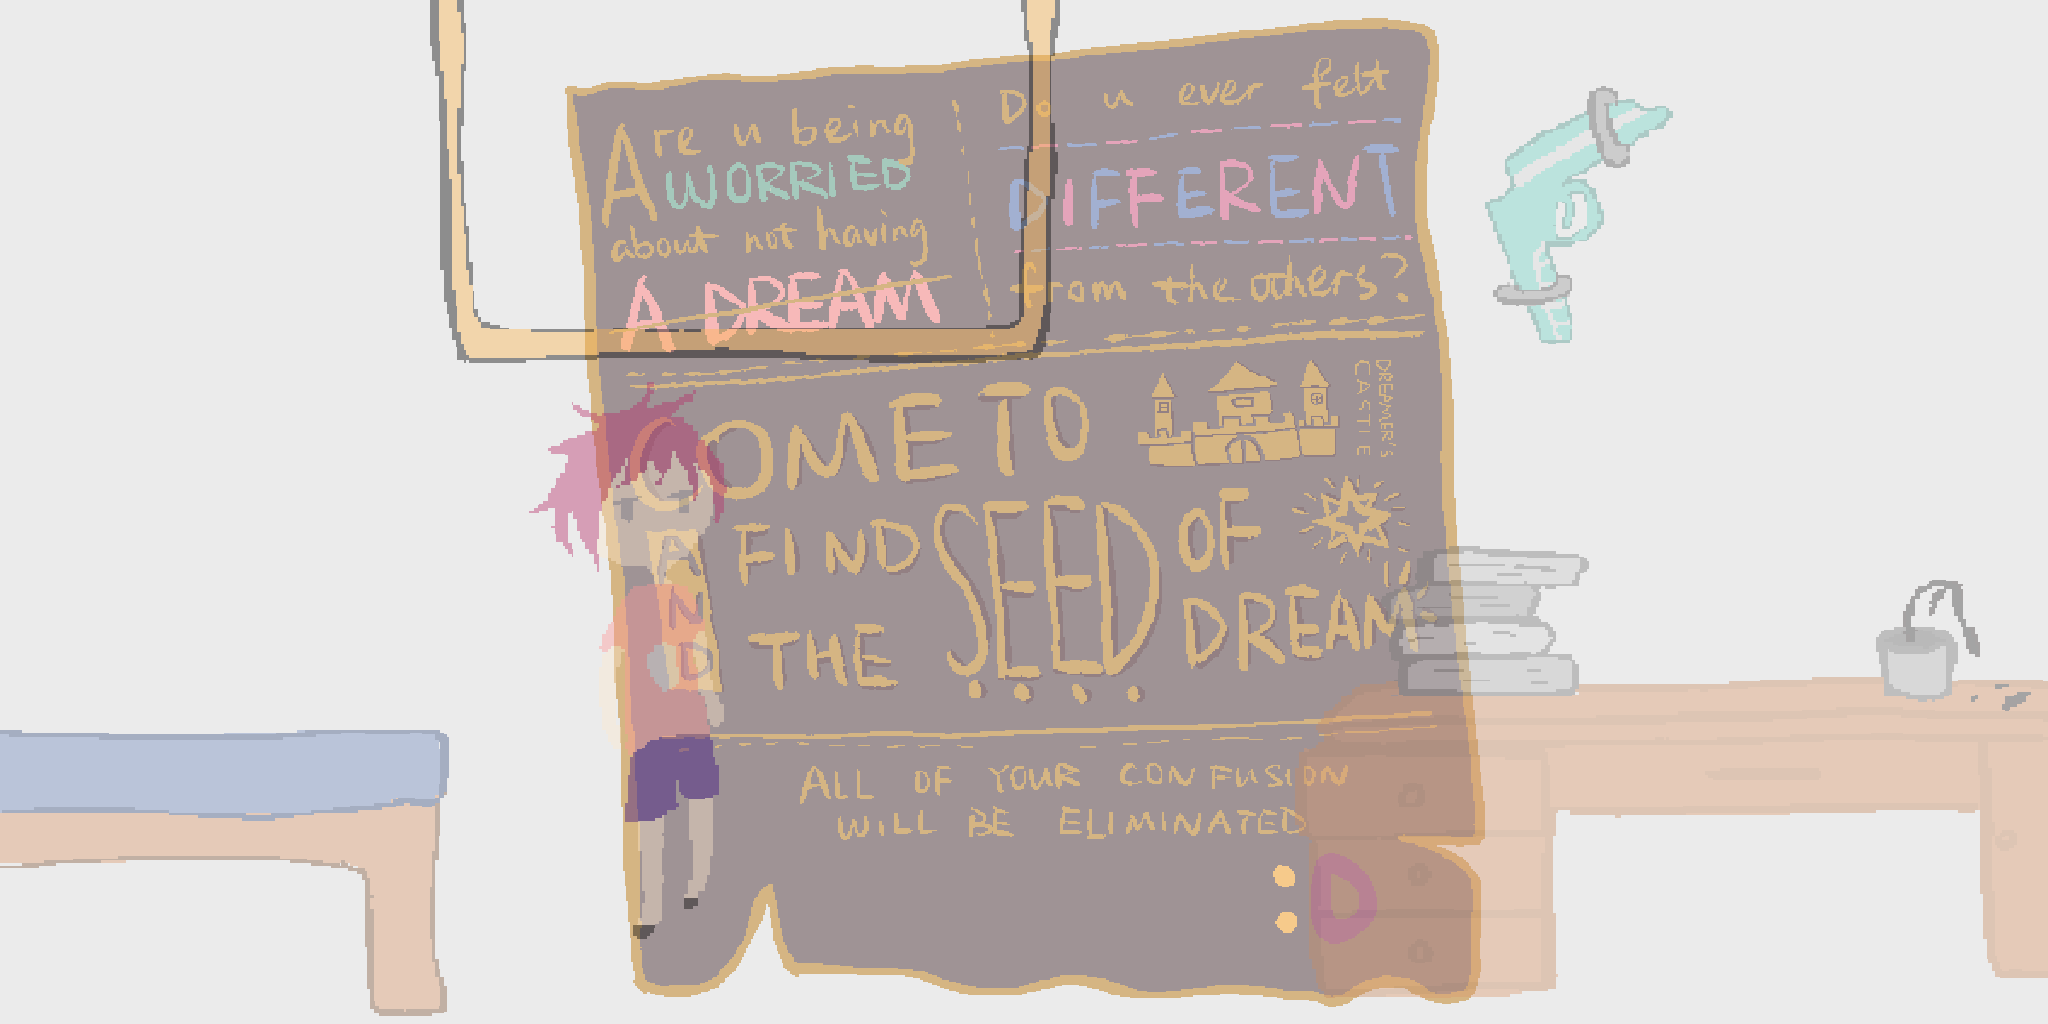 Are u being
WORRIED
about not having
A DREAM
Do u ever felt
DIFFERENT
from the others?
COME TO
DREAMER'S
CASTLE
AND FIND SEED OF
THE DREAM
ALL OF YOUR CONFUSION
WILL BE ELIMINATED
:D